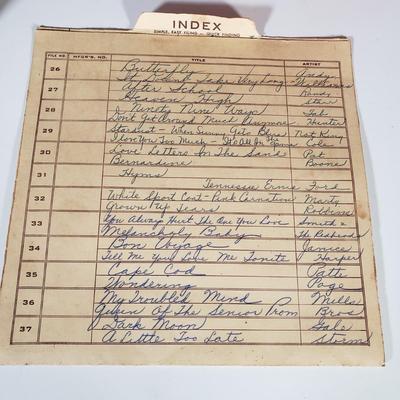 INDEX
SIMPLE, EASY FILING — QUICK FINDING
FILE NO. MFGR'S. NO. TITLE ARTIST
26 Butterfly Andy
It Doesn't Take Very Long Williams
27 After School Randy
Heaven High Starr
28 Ninety Nine Ways Tab
Don't Get Around Much Anymore Hunter
29 Stardust - When Sunny Gets Blue Nat King
I Love You Too Much - It's All In The Game Cole
30 Love Letters In The Sand Pat
Bernardine Boone
31 Hyms
Tennessee Ernie Ford
32 White Sport Coat - Pink Carnation Marty
Grown Up Tears Robbins
33 You Always Hurt The One You Love Smith &
Melancholy Baby The Redheads
34 Bon Voyage Janice
Tell Me You Love Me Tonite Harper
35 Cape Cod Patti
Wondering Page
36 My Troubled Mind Mills
Queen Of The Senior Prom Bros
37 Dark Moon Gale
A Little Too Late Storm